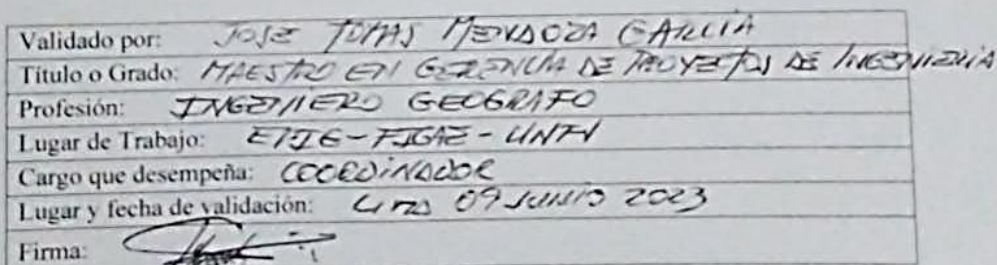 Validado por: JOSE TOMAS MENDOZA GARCIA
Título o Grado: MAESTRO EN GERENCIA DE PROYECTOS DE INGENIERIA
Profesión: INGENIERO GEOGRAFO
Lugar de Trabajo: EPIG-FIGAE-UNFV
Cargo que desempeña: COORDINADOR
Lugar y fecha de validación: Lima 09 JUNIO 2023
Firma: